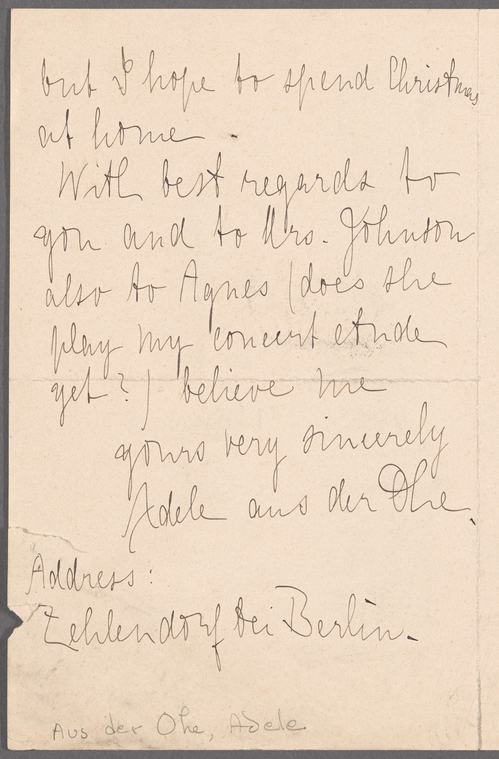 but I hope to spend Christmas
at home.
With best regards to
you and to Mrs. Johnson
also to Agnes (does she
play my concert etude
yet?) believe me
yours very sincerely
Adele aus der Ohe.
Address:
Zehlendorf bei Berlin.
Aus der Ohe, Adele